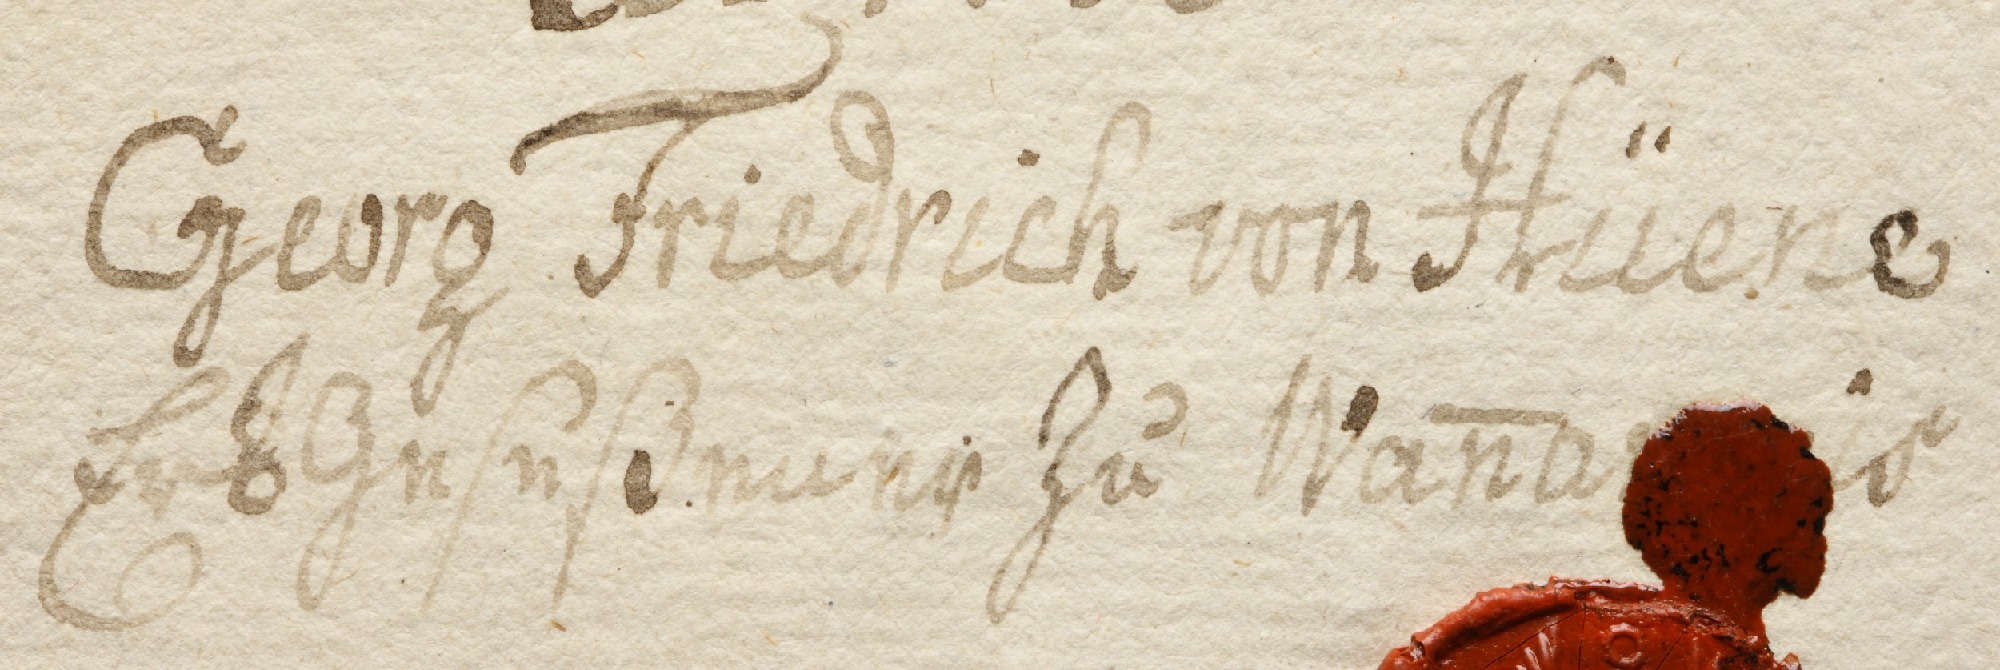 Georg Friedrich von Hüene
Erb Gesessener Zu